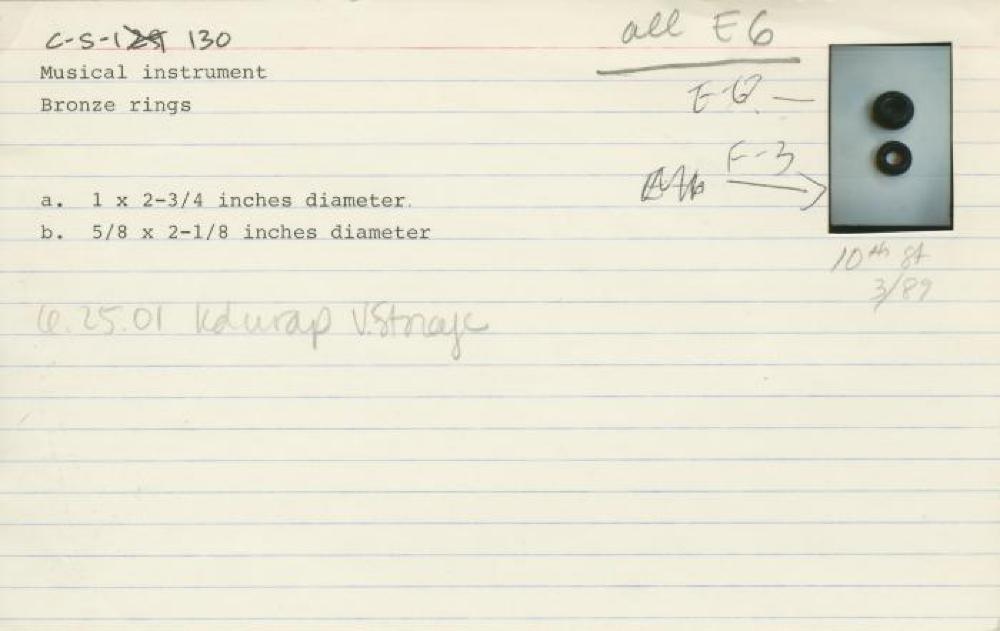 C-S-129 130
all E6
Musical instrument
E-6?
Bronze rings
F-3
a. 1 x 2-3/4 inches diameter.
b. 5/8 x 2-1/8 inches diameter
10th St
3/89
6.25.01 V.Storage